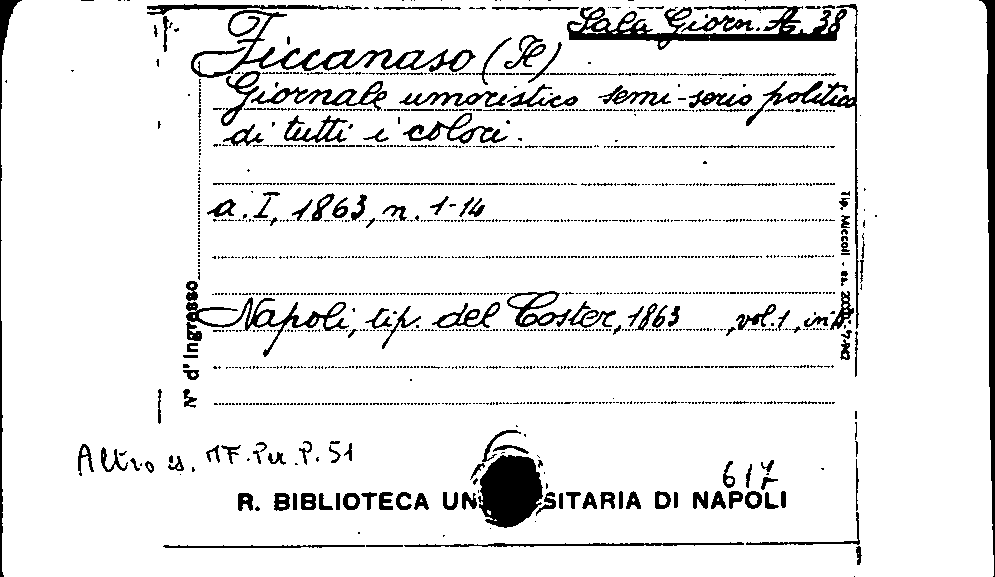 Sala Giorn. A. 38
Ficcanaso (Il)
Giornale umoristico semi-serio politico
di tutti i colori.
a. I, 1863, n. 1-14
Napoli, tip. del Coster, 1863 , vol. 1, in
N° d'Ingresso
Tip. Miccoli - es.
Altro es. MF. Per. P. 51
617
R. BIBLIOTECA UN SITARIA DI NAPOLI